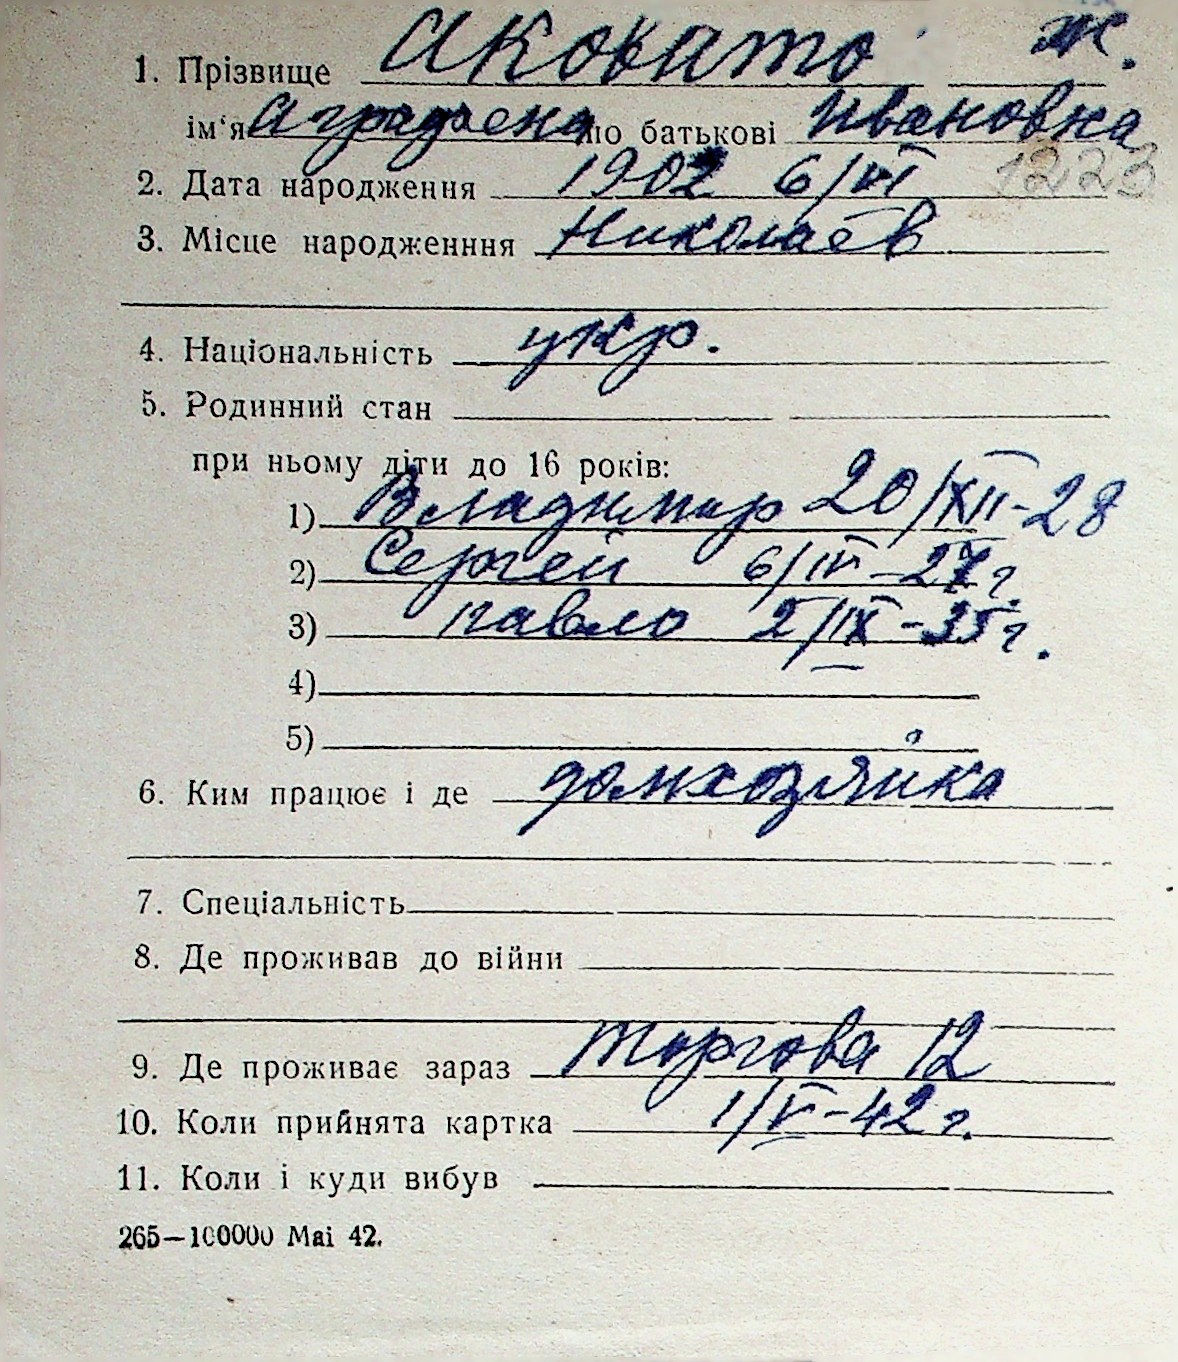 1. Прізвище Аковато ж.
ім‘я Аграфена по батькові Ивановна
2. Дата народження 1902 6/VI 1223
3. Місце народженння Николаев
4. Національність укр.
5. Родинний стан
при ньому діти до 16 років:
1) Владимир 20/XII-28
2) Сергей 6/IV-27г.
3) павло 2/IX-35г.
4)
5)
6. Ким працює і де домхозяйка
7. Спеціальність
8. Де проживав до війни
9. Де проживає зараз Торгова 12
10. Коли прийнята картка 1/V-42г.
11. Коли і куди вибув
265—100000 Mai 42.